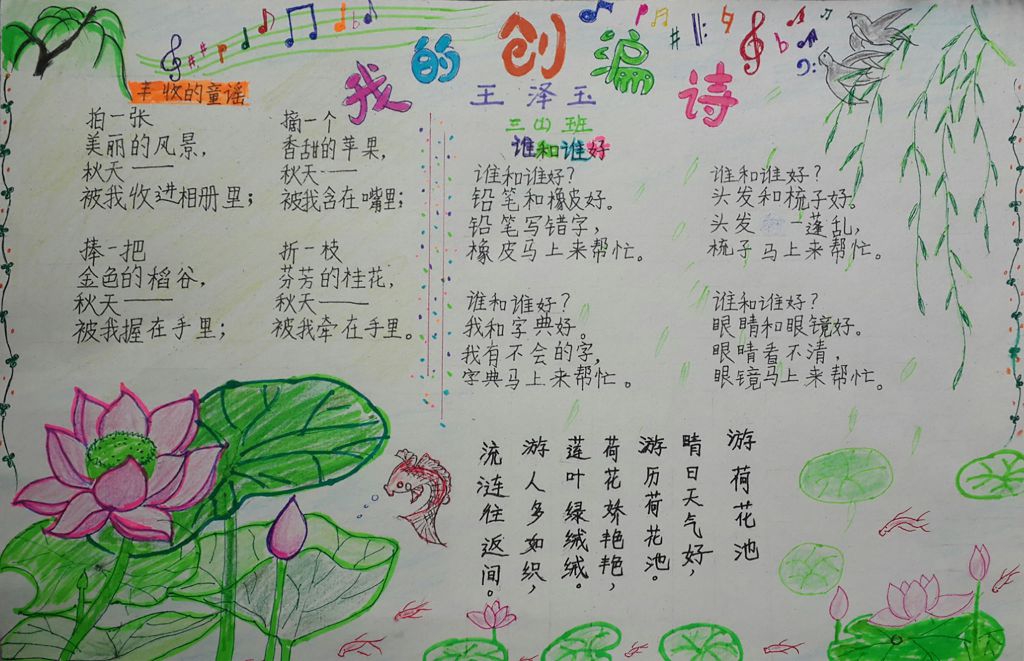 我的创编诗
王泽玉
三(1)班
丰收的童谣
拍一张
美丽的风景，
秋天——
被我收进相册里；
摘一个
香甜的苹果，
秋天——
被我含在嘴里；
捧一把
金色的稻谷，
秋天——
被我握在手里；
折一枝
芬芳的桂花，
秋天——
被我牵在手里。
谁和谁好
谁和谁好？
铅笔和橡皮好。
铅笔写错字，
橡皮马上来帮忙。
谁和谁好？
头发和梳子好。
头发一蓬乱，
梳子马上来帮忙。
谁和谁好？
我和字典好。
我有不会的字，
字典马上来帮忙。
谁和谁好？
眼睛和眼镜好。
眼睛看不清，
眼镜马上来帮忙。
游荷花池
晴日天气好，
游历荷花池。
荷花娇艳艳，
莲叶绿绒绒。
游人多如织，
流涟往返间。